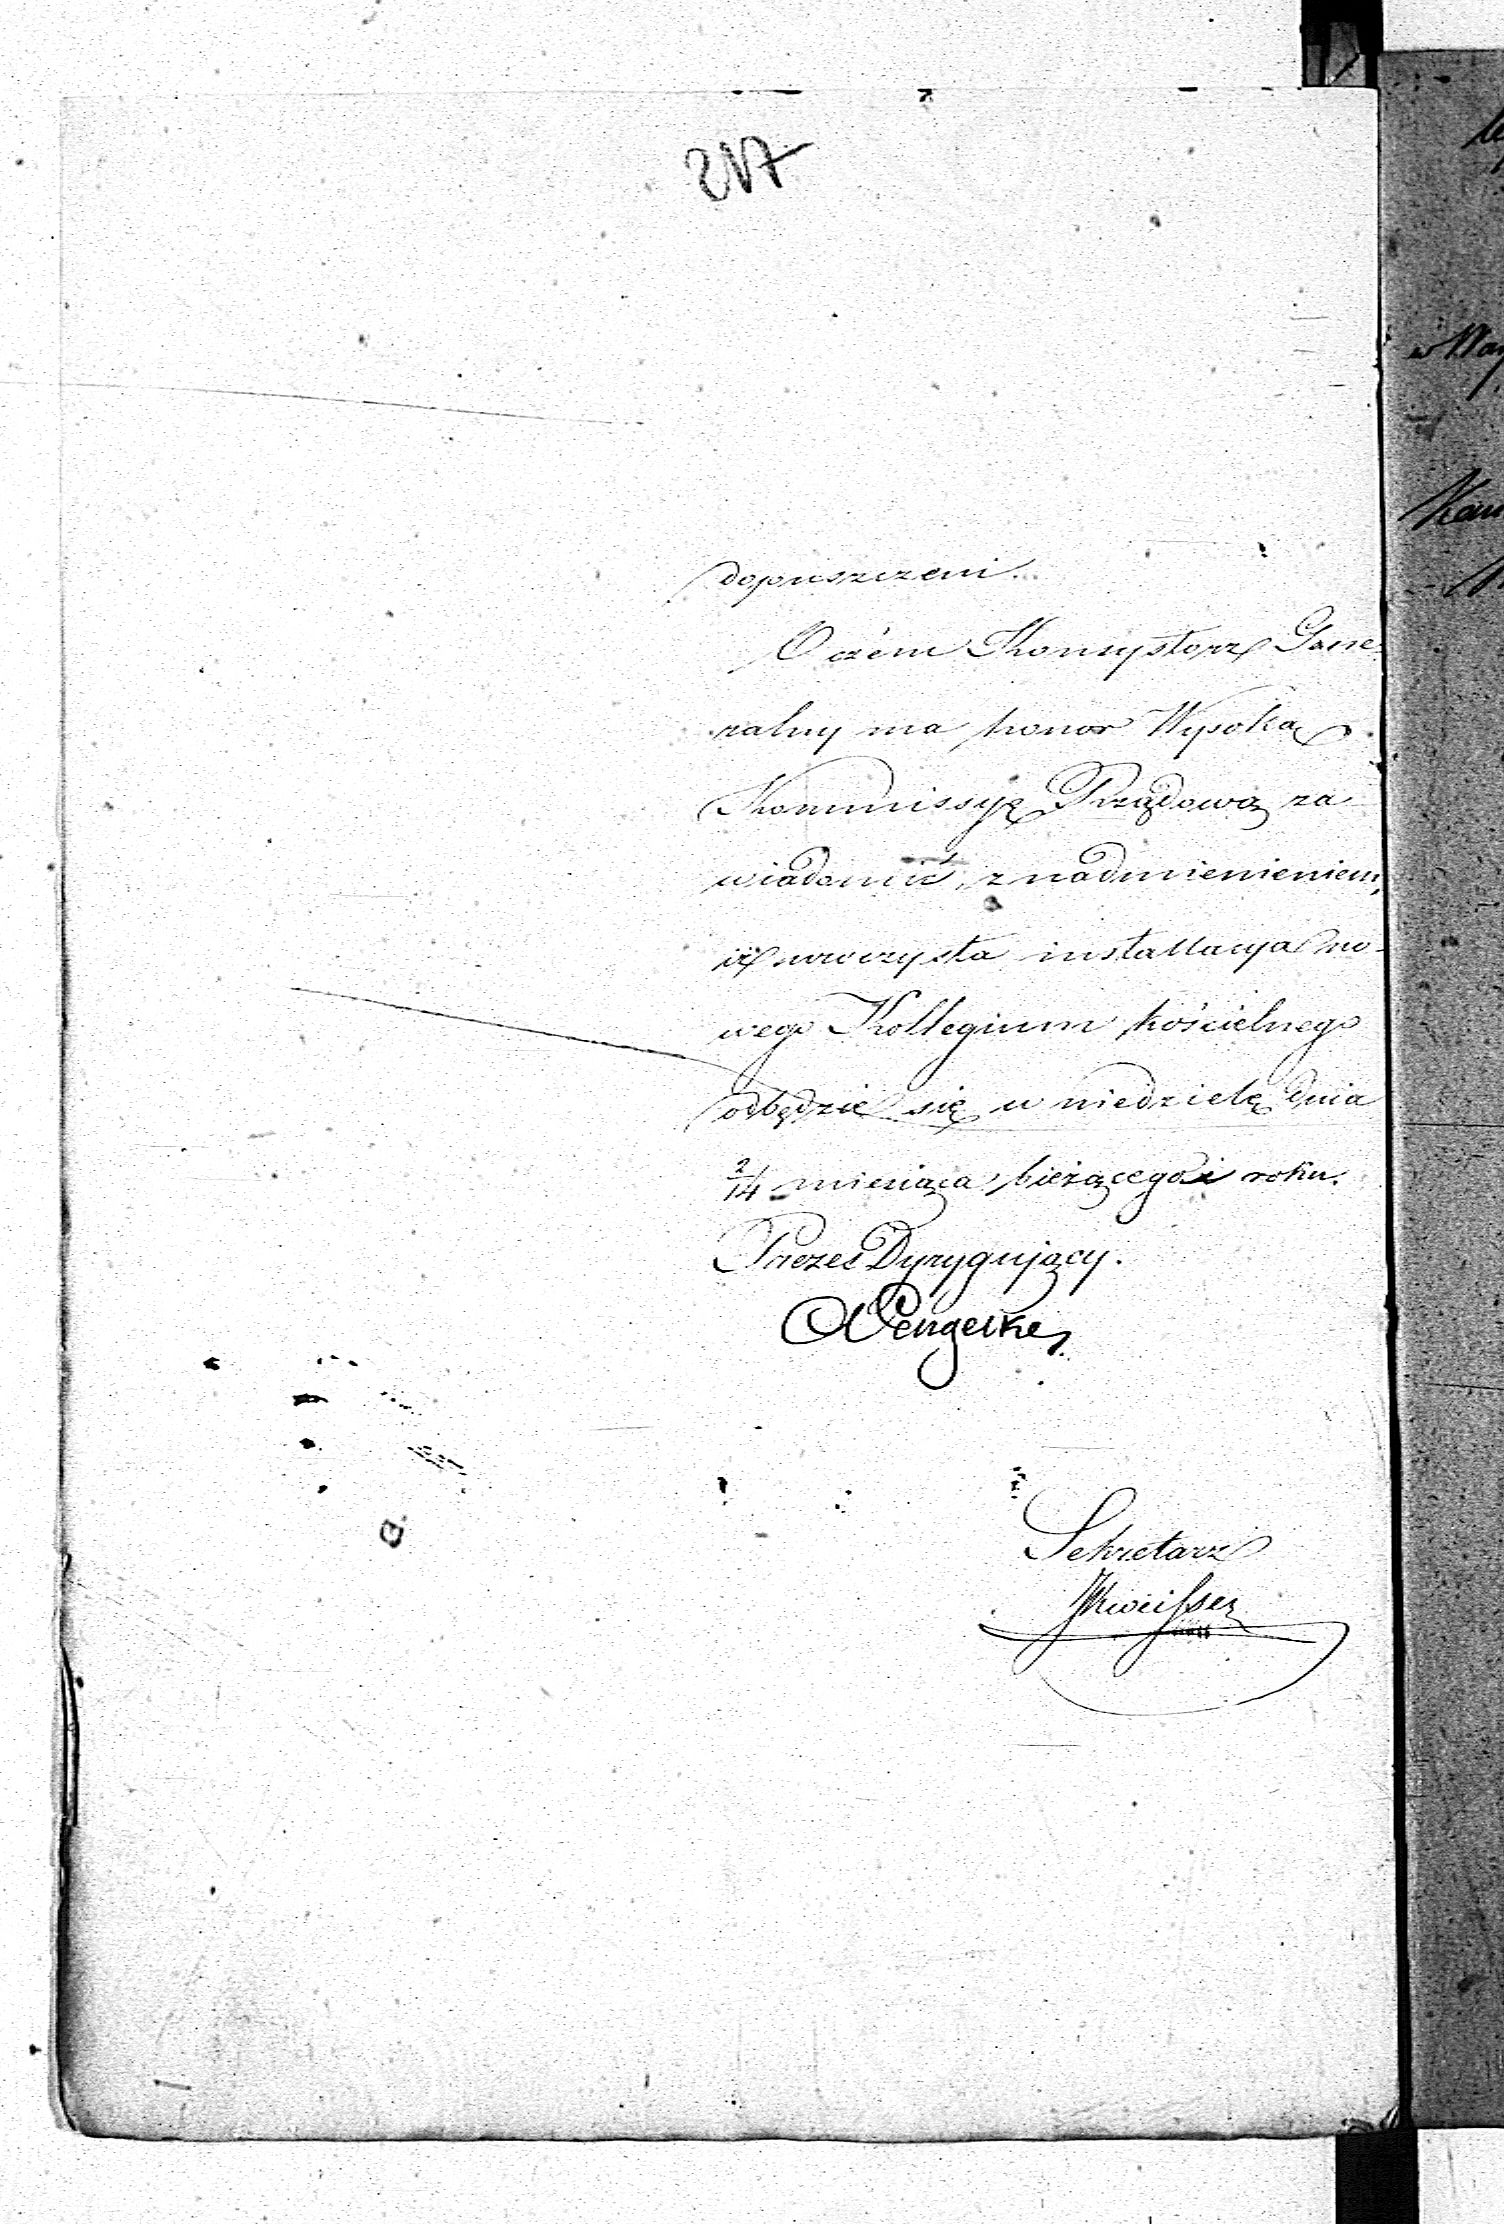 217
dopuszczeni.
O czém Konsystorz Gene-
ralny ma honor Wysoką
Kommissyę Rządową za
wiadomić, z nadmienieniem,
iż uroczysta installacya no-
wego Kollegium kościelnego
odbędzie się w niedzielę dnia
2/14 miesiąca bieżącego i roku.
Prezes Dyrygujący.
Sekretarz